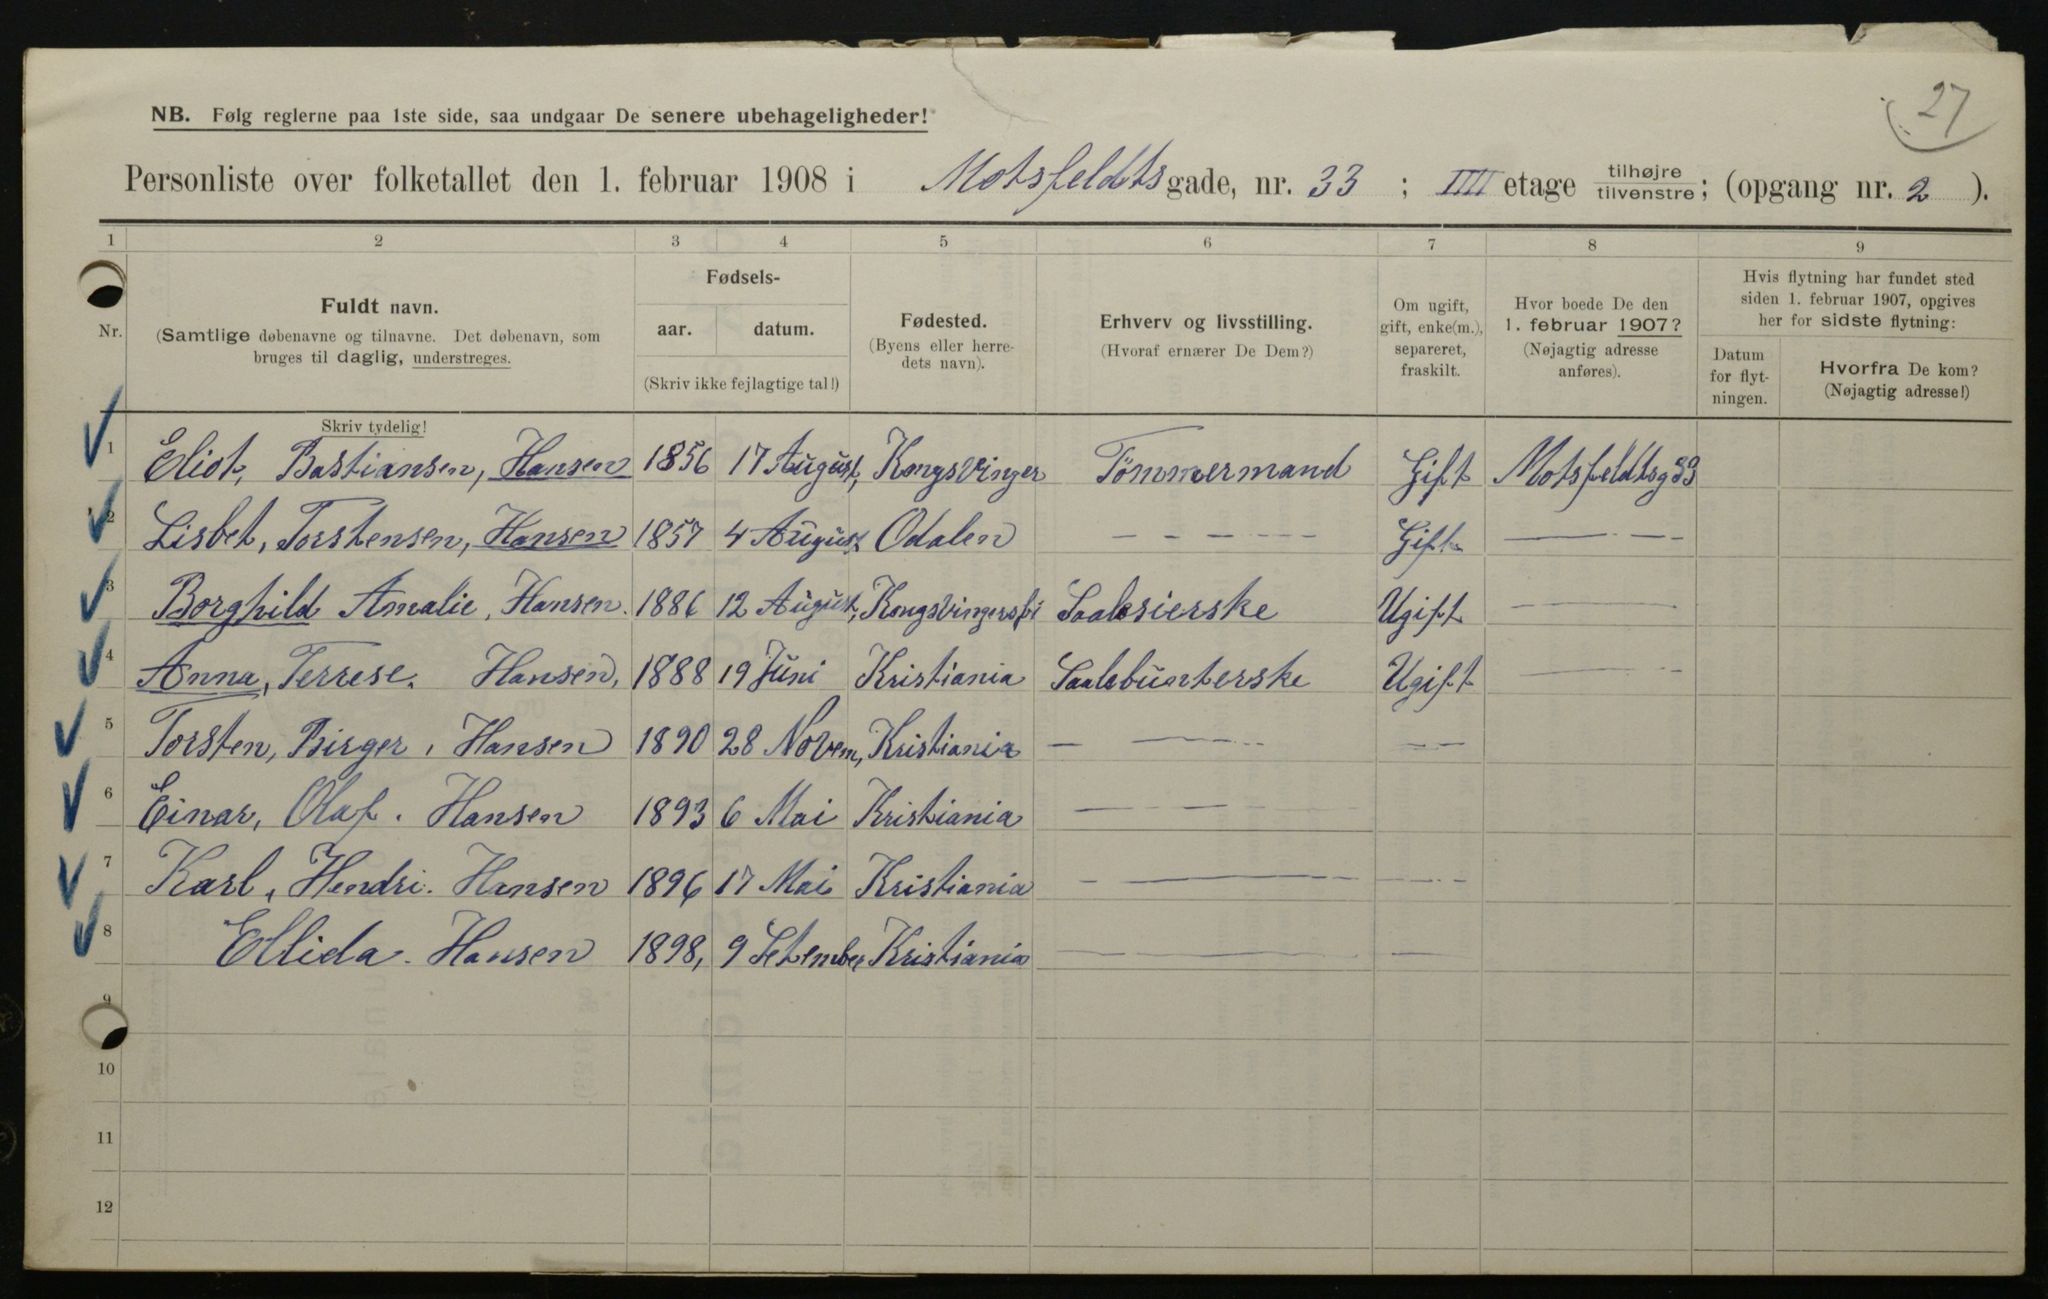 27
NB. Følg reglerne paa 1ste side, saa undgaar De senere ubehageligheder!
Personliste over folketallet den 1. februar 1908 i Motsfeldtsgade, nr. 33 ; IIII etage tilhøjre tilvenstre ; (opgang nr. 2 ).
1 2 3 4 5 6 7 8 9
Nr.
Fuldt navn.
(Samtlige døbenavne og tilnavne. Det døbenavn, som
bruges til daglig, understreges.
Skriv tydelig!
Fødsels-
aar. datum.
(Skriv ikke fejlagtige tal!)
Fødested.
(Byens eller herre-
dets navn).
Erhverv og livsstilling.
(Hvoraf ernærer De Dem?)
Om ugift,
gift, enke(m.),
separeret,
fraskilt.
Hvor boede De den
1. februar 1907?
(Nøjagtig adresse
anføres).
Hvis flytning har fundet sted
siden 1. februar 1907, opgives
her for sidste flytning:
Datum
for flyt-
ningen.
Hvorfra De kom?
(Nøjagtig adresse!)
1 Eliot, Bastiansen, Hansen 1856 17 August, Kongsvinger Tömmermand Gift Motsfeldtsg 33
2 Lisbet, Torstensen, Hansen 1857 4 August Odalen - - - - - - Gift — - — -
3 Borghild Amalie, Hansen. 1886 12 August, Saalesierske Ugift — — — —
4 Anna, Terrese. Hansen, 1888 19 Juni Kristiania Ugift — — — —
5 Torsten, Birger, Hansen 1890 28 Novem, Kristiania — — — —
6 Einar, Olaf. Hansen 1893 6 Mai Kristiania — — — —
7 Karl, Hendri. Hansen 1896 17 Mai Kristiania — — — —
8 Ellida. Hansen 1898, 9 Setember Kristiania — — — —
9
10
11
12